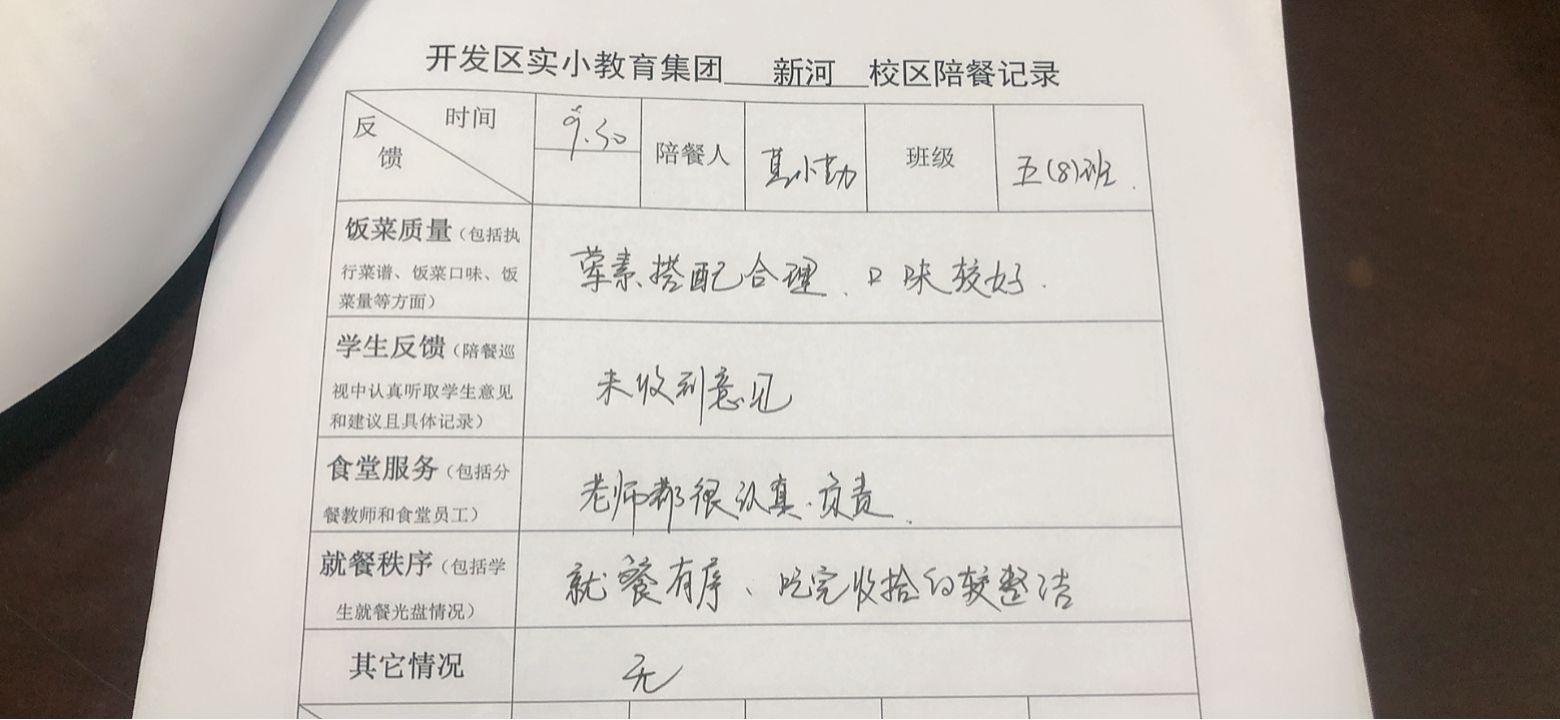 开发区实小教育集团 新河 校区陪餐记录
时间
反馈
9.30
陪餐人
小勤
班级
五(8)班.
饭菜质量(包括执
行菜谱、饭菜口味、饭
菜量等方面)
荤素搭配合理、口味较好.
学生反馈(陪餐巡
视中认真听取学生意见
和建议且具体记录)
未收到意见
食堂服务(包括分
餐教师和食堂员工)
老师都很认真.负责.
就餐秩序(包括学
生就餐光盘情况)
就餐有序、吃完收拾的较整洁
其它情况
无